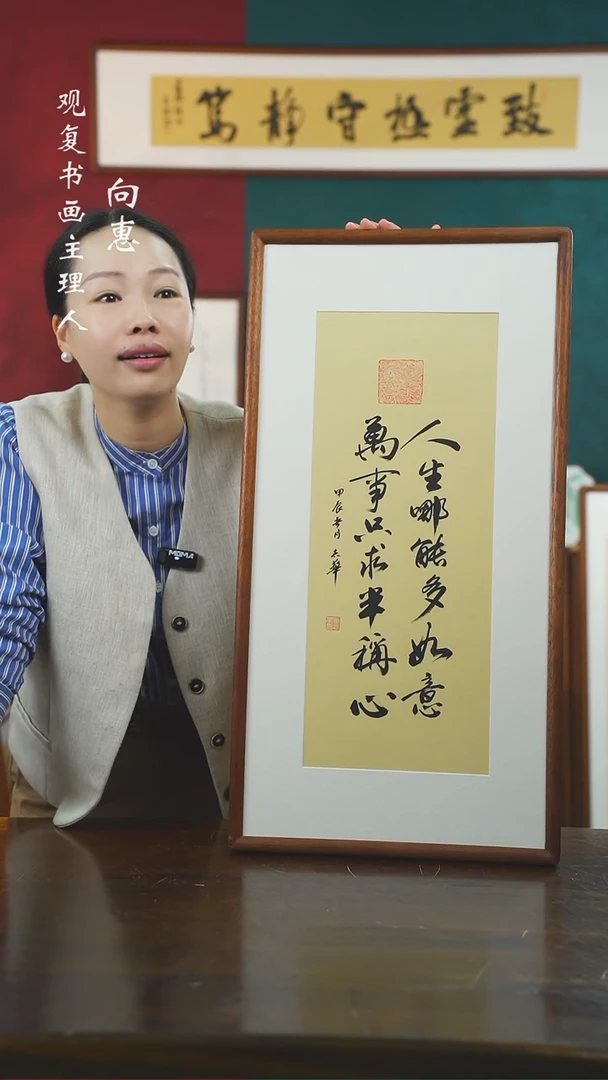 观复书画主理人
向惠
致虚极守静笃
人生哪能多如意
萬事只求半稱心
甲辰
MOMA